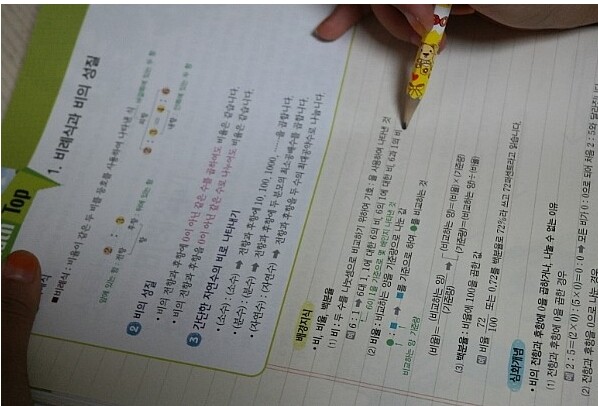 Top
1. 비례식과 비의 성질
■비례식 : 비율이 같은 두 비를 등호를 사용하여 나타낸 식
앞에 있는 항 전항
후항 뒤에 있는 항
항
외항 바깥쪽에 있는 두 항
내항 안쪽에 있는 두 항
2 비의 성질
• 비의 전항과 후항에 0이 아닌 같은 수를 곱하여도 비율은 같습니다.
• 비의 전항과 후항을 0이 아닌 같은 수로 나누어도 비율은 같습니다.
3 간단한 자연수의 비로 나타내기
• (소수) : (소수) ⇒ 전항과 후항에 10, 100, 1000, ……을 곱합니다.
• (분수) : (분수) ⇒ 전항과 후항에 두 분모의 최소공배수를 곱합니다.
• (자연수) : (자연수) ⇒ 전항과 후항을 두 수의 최대공약수로 나눕니다.
배경지식
• 비, 비율, 백분율
(1) 비 : 두 수를 나눗셈으로 비교하기 위하여 기호 : 을 사용하여 나타낸 것
예 6 : 1 ⇒ 6 대 1, 1에 대한 6의 비, 6의 1에 대한 비, 6과 1의 비
(2) 비율 : 비교하는 양을 기준량으로 나눈 값
● : ■ ⇒ ■를 기준으로 하여 ●를 비교하는 것
비교하는 양 기준량
(비율)=(비교하는 양)/(기준량)
(비교하는 양)=(비율)×(기준량)
(기준량)=(비교하는 양)÷(비율)
(3) 백분율 : 비율에 100을 곱한 값
예 비율 72/100 또는 0.72를 백분율로 72%라 쓰고 72퍼센트라고 읽습니다.
심화개념
• 비의 전항과 후항에 0을 곱하거나, 나눌 수 없는 이유
(1) 전항과 후항에 0을 곱한 경우
예 2 : 5=(2×0) : (5×0)=0 : 0 ⇒ 모든 비가 0 : 0으로 되어 처음 2 : 5와
(2) 전항과 후항을 0으로 나눈 경우